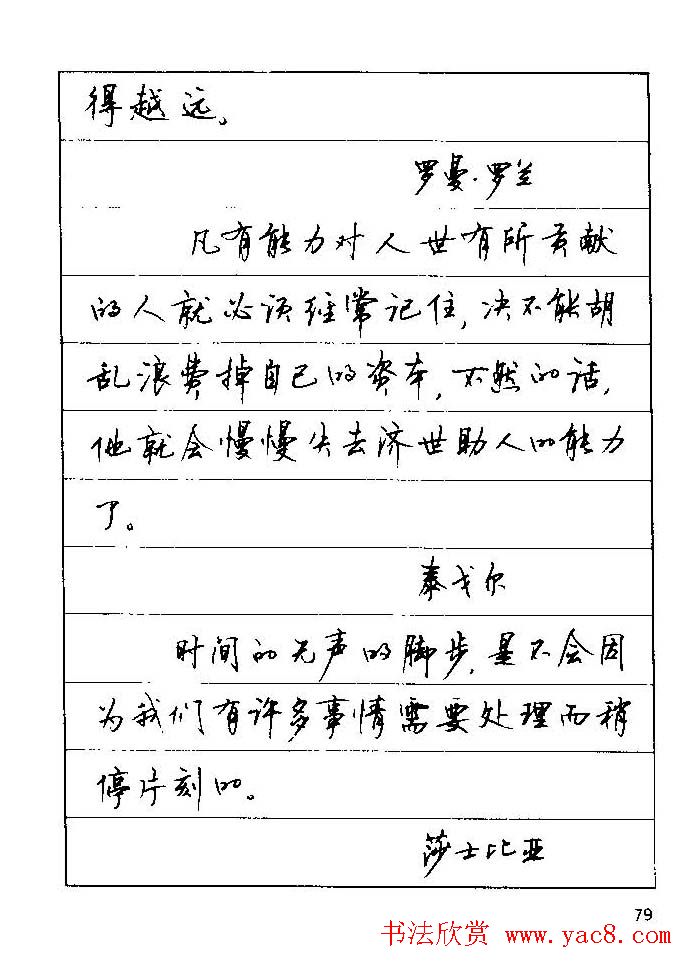 得越远。
罗曼·罗兰
凡有能力对人世有所贡献
的人就必须经常记住,决不能胡
乱浪费掉自己的资本,不然的话,
他就会慢慢失去济世助人的能力
了。
泰戈尔
时间的无声的脚步,是不会因
为我们有许多事情需要处理而稍
停片刻的。
莎士比亚
79
书法欣赏 www.yac8.com